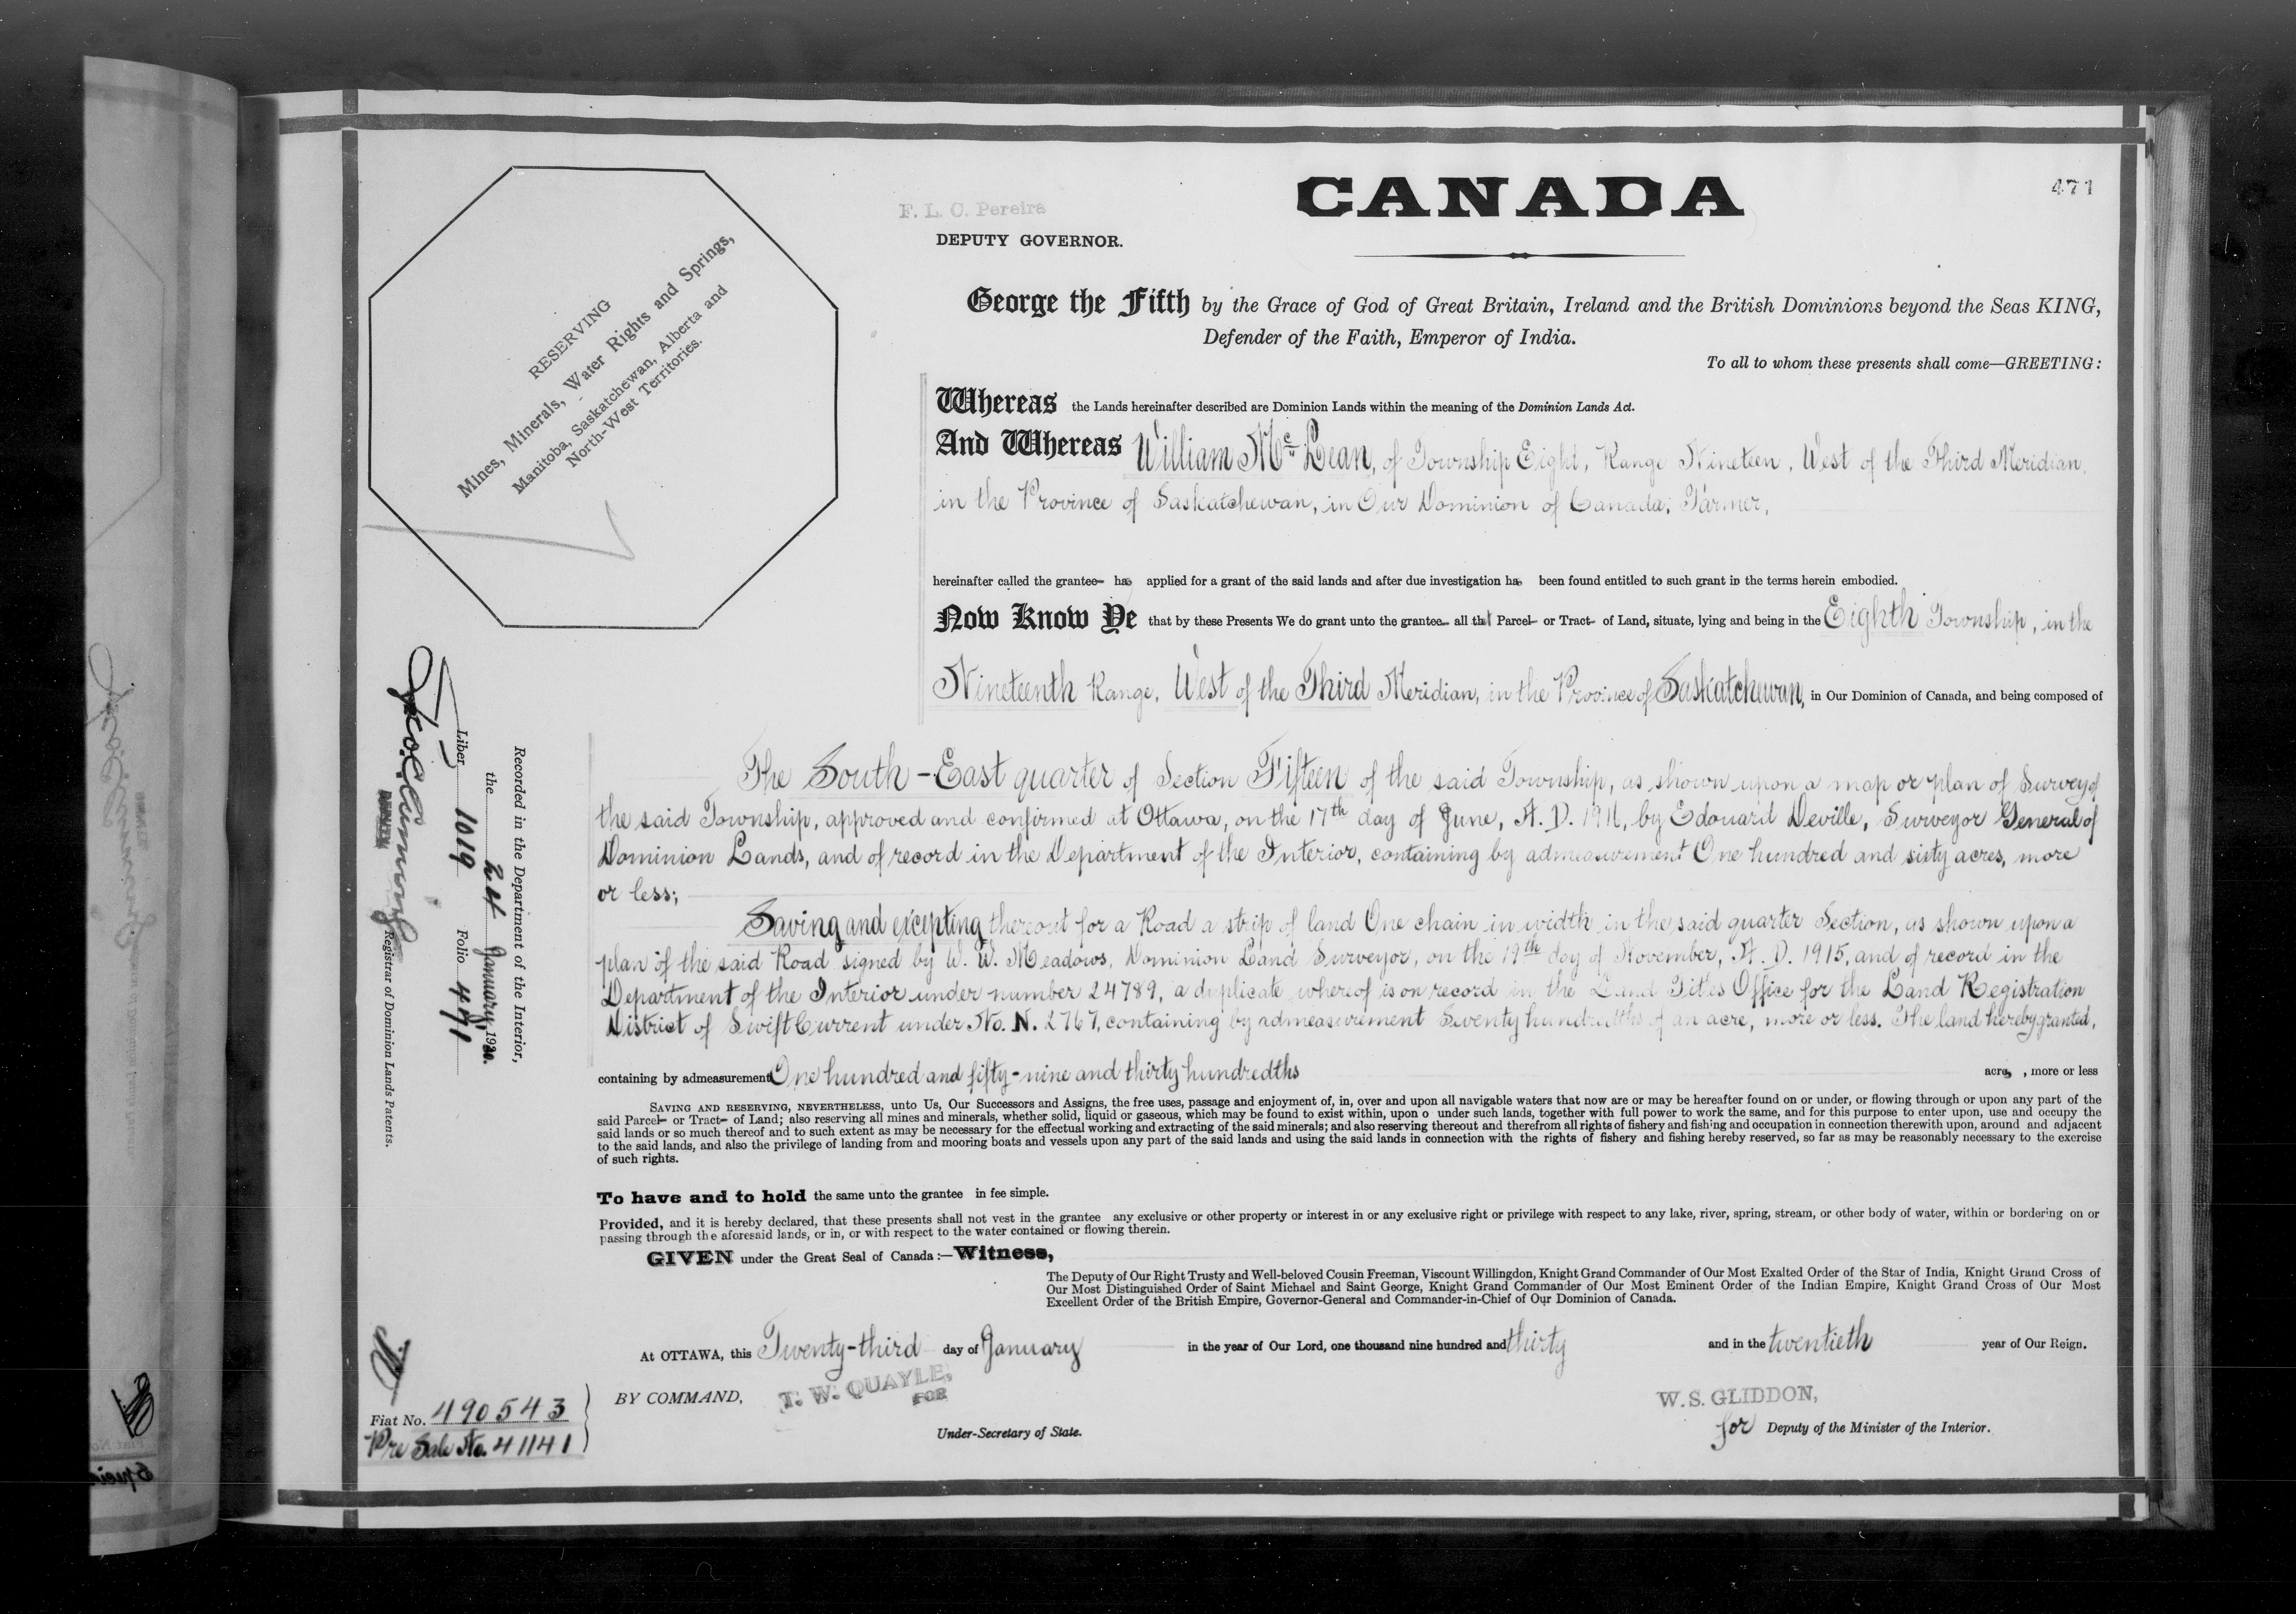 471
CANADA
F. L. C. Pereira
DEPUTY GOVERNOR.
RESERVING
Mines, Minerals, Water Rights and Springs,
Manitoba, Saskatchewan, Alberta and
North-West Territories.
George the Fifth by the Grace of God of Great Britain, Ireland and the British Dominions beyond the Seas KING,
Defender of the Faith, Emperor of India.
To all to whom these presents shall come—GREETING:
Whereas the Lands hereinafter described are Dominion Lands within the meaning of the Dominion Lands Act.
And Whereas William McLean, of Township Eight, Range Nineteen, West of the Third Meridian,
in the Province of Saskatchewan, in Our Dominion of Canada; Farmer,
hereinafter called the grantee has applied for a grant of the said lands and after due investigation has been found entitled to such grant in the terms herein embodied.
Now Know Ye that by these Presents We do grant unto the grantee all that Parcel or Tract of Land, situate, lying and being in the Eighth Township, in the
Nineteenth Range, West of the Third Meridian, in the Province of Saskatchewan, in Our Dominion of Canada, and being composed of
The South-East quarter of Section Fifteen of the said Township, as shown upon a map or plan of Survey of
the said Township, approved and confirmed at Ottawa, on the 17th day of June, A. D. 1911, by Edouard Deville, Surveyor General of
Dominion Lands, and of record in the Department of the Interior, containing by admeasurement One hundred and sixty acres, more
or less;
Saving and excepting thereout for a Road a strip of land One chain in width in the said quarter Section, as shown upon a
plan of the said Road signed by W. W. Meadows, Dominion Land Surveyor, on the 19th day of November, A. D. 1915, and of record in the
Department of the Interior under number 24789, a duplicate whereof is on record in the Land Titles Office for the Land Registration
District of Swift Current under No. N. 2767, containing by admeasurement Seventy hundredths of an acre, more or less. The land hereby granted,
containing by admeasurement One hundred and fifty-nine and thirty hundredths acres, more or less
SAVING AND RESERVING, NEVERTHELESS, unto Us, Our Successors and Assigns, the free uses, passage and enjoyment of, in, over and upon all navigable waters that now are or may be hereafter found on or under, or flowing through or upon any part of the
said Parcel or Tract of Land; also reserving all mines and minerals, whether solid, liquid or gaseous, which may be found to exist within, upon o under such lands, together with full power to work the same, and for this purpose to enter upon, use and occupy the
said lands or so much thereof and to such extent as may be necessary for the effectual working and extracting of the said minerals; and also reserving thereout and therefrom all rights of fishery and fishing and occupation in connection therewith upon, around and adjacent
to the said lands, and also the privilege of landing from and mooring boats and vessels upon any part of the said lands and using the said lands in connection with the rights of fishery and fishing hereby reserved, so far as may be reasonably necessary to the exercise
of such rights.
To have and to hold the same unto the grantee in fee simple.
Provided, and it is hereby declared, that these presents shall not vest in the grantee any exclusive or other property or interest in or any exclusive right or privilege with respect to any lake, river, spring, stream, or other body of water, within or bordering on or
passing through the aforesaid lands, or in, or with respect to the water contained or flowing therein.
GIVEN under the Great Seal of Canada:—Witness,
The Deputy of Our Right Trusty and Well-beloved Cousin Freeman, Viscount Willingdon, Knight Grand Commander of Our Most Exalted Order of the Star of India, Knight Grand Cross of
Our Most Distinguished Order of Saint Michael and Saint George, Knight Grand Commander of Our Most Eminent Order of the Indian Empire, Knight Grand Cross of Our Most
Excellent Order of the British Empire, Governor-General and Commander-in-Chief of Our Dominion of Canada.
At OTTAWA, this Twenty-third day of January in the year of Our Lord, one thousand nine hundred and thirty and in the twentieth year of Our Reign.
BY COMMAND,
T. W. QUAYLE,
FOR
Under-Secretary of State.
W. S. GLIDDON,
for Deputy of the Minister of the Interior.
Recorded in the Department of the Interior,
the 24 January, 1930.
Liber 1019 Folio 471
Registrar of Dominion Lands Patents.
Fiat No. 490543
Pre Sale No. 41141